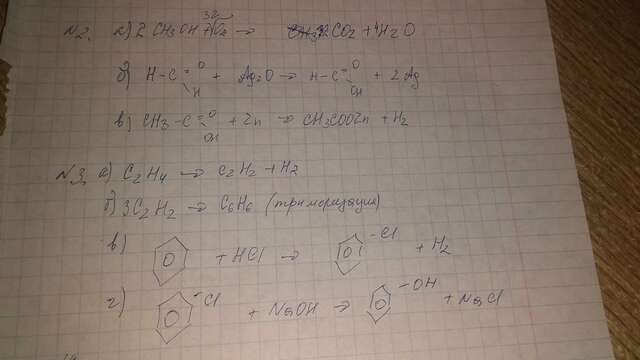 N2. а) 2 CH3OH + 3O2 → 2CO2 + 4H2O
б) H-C =O H + Ag2O → H-C =O OH + 2Ag
в) CH3-C =O OH + Zn → CH3COOZn + H2
N3. а) C2H4 → C2H2 + H2
б) 3C2H2 → C6H6 (тримеризация)
в) + HCl → -Cl + H2
г) -Cl + NaOH → -OH + NaCl